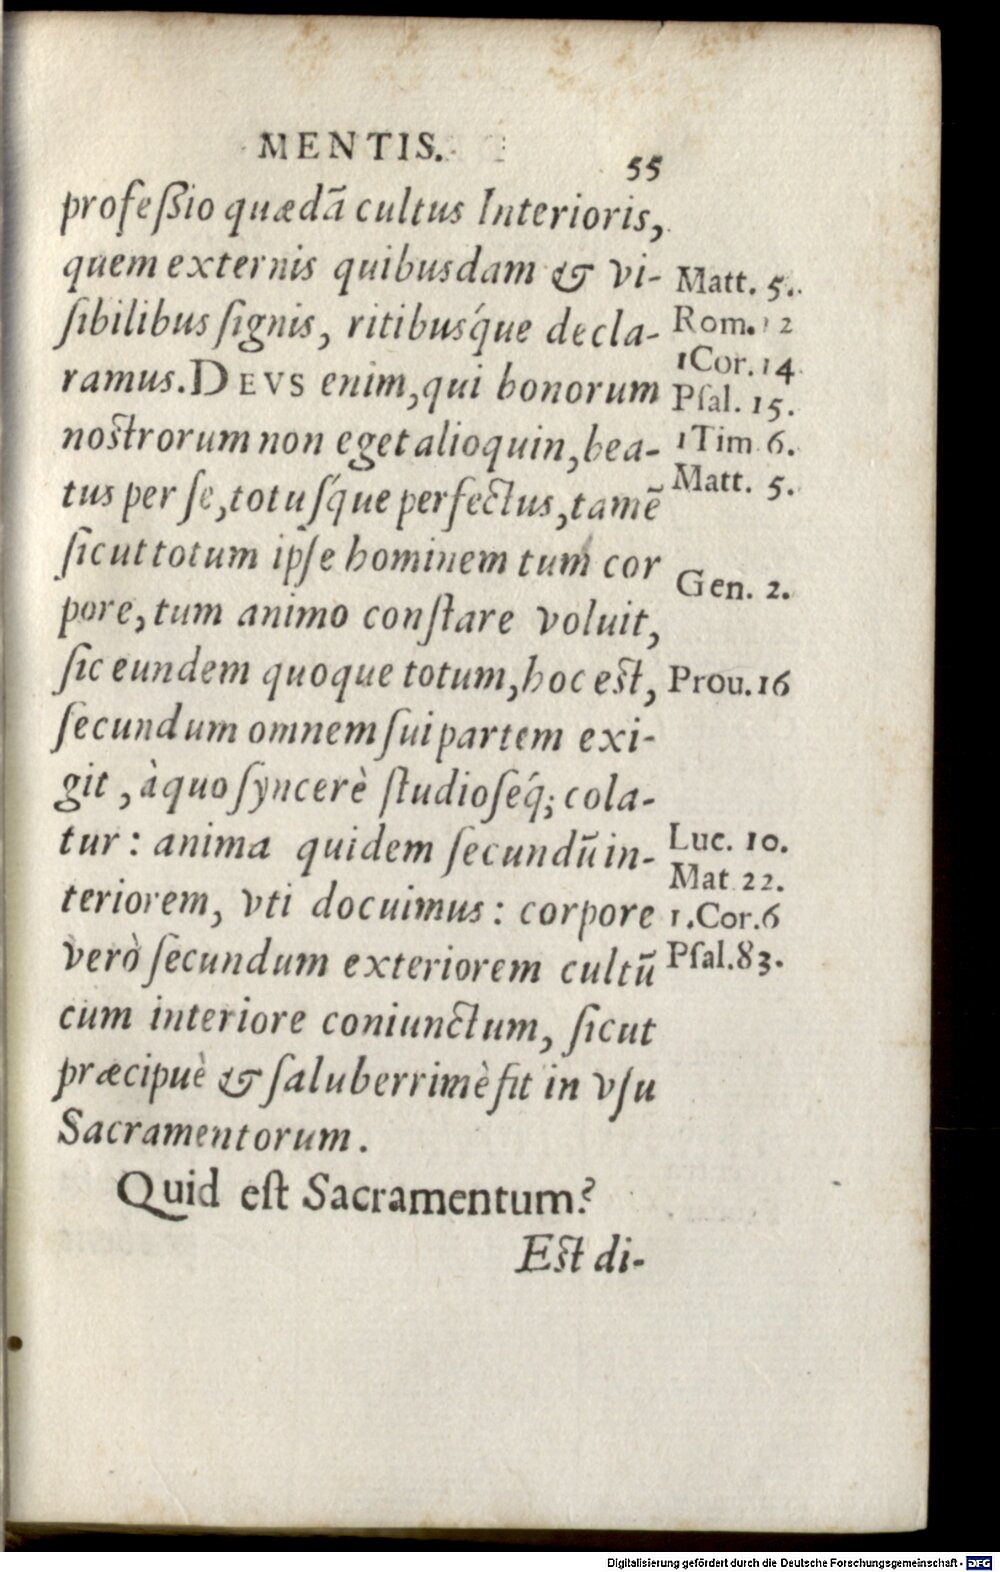 MENTIS.
55
profeſſio quædā cultus Interioris,
quem externis quibusdam & vi-
ſibilibus ſignis, ritibusq́ue decla-
ramus. DEVS enim, qui bonorum
noſtrorum non eget alioquin, bea-
tus per ſe, totuſq́ue perfectus, tamē
ſicut totum ipſe hominem tum cor
pore, tum animo conſtare voluit,
ſic eundem quoque totum, hoc eſt,
ſecundum omnem ſui partem exi-
git, à quo ſyncerè ſtudioſéq́; cola-
tur: anima quidem ſecundū in-
teriorem, vti docuimus: corpore
verò ſecundum exteriorem cultū
cum interiore coniunctum, ſicut
præcipuè & ſaluberrimè fit in vſu
Sacramentorum.
Quid eſt Sacramentum?
Eſt di-
Matt. 5.
Rom. 12
1Cor. 14.
Pſal. 15.
1Tim 6.
Matt. 5.
Gen. 2.
Prou. 16
Luc. 10.
Mat 22.
1. Cor. 6
Pſal. 83.
Digitalisierung gefördert durch die Deutsche Forschungsgemeinschaft - DFG